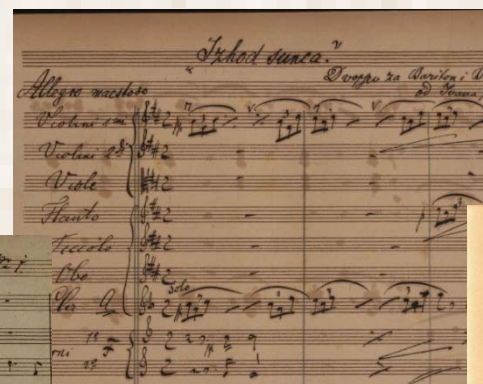 "Izhod sunca."
Dvopjev za Bariton i B
od Ivana,
Allegro maestoso
Violini 1mi
Violini 2di
Viole
Flauto
Piccolo
Obo
Cla A
Solo
oni